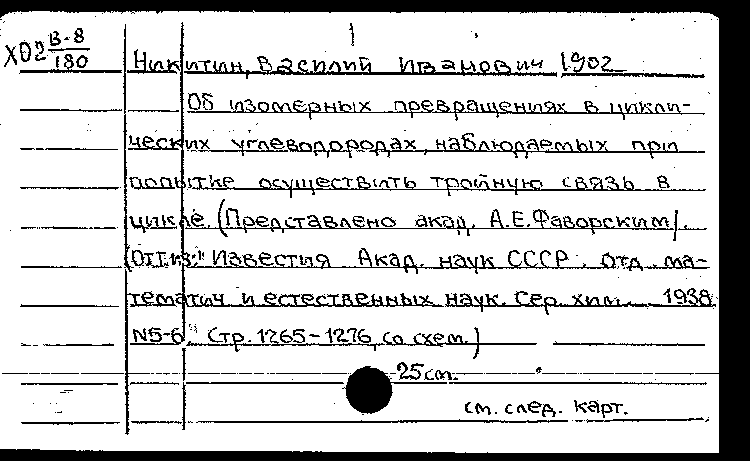 1
ХО2 В-8/180
Никитин, Василий Иванович 1902
Об изомерных превращениях в цикли-
ческих углеводородах, наблюдаемых при
попытке осуществить тройную связь в
цикле. (Представлено акад. А.Е.Фаворским).
(Отт.из: "Известия Акад. наук СССР. Отд. ма-
тематич и естественных наук. Сер. хим. 1938
N5-6". Стр. 1265-1276, со схем.)
25 cm.
см. след. карт.